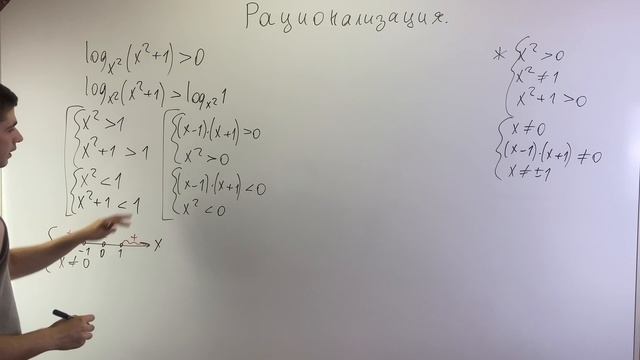 Рационализация.
log_{x²}(x²+1)>0
log_{x²}(x²+1)>log_{x²}1
x²>1
x²+1>1
x²<1
x²+1<1
(x-1)·(x+1)>0
x²>0
(x-1)·(x+1)<0
x²<0
+ + x
-1 0 1
x≠0
* x²>0
x²≠1
x²+1>0
x≠0
(x-1)·(x+1)≠0
x≠±1